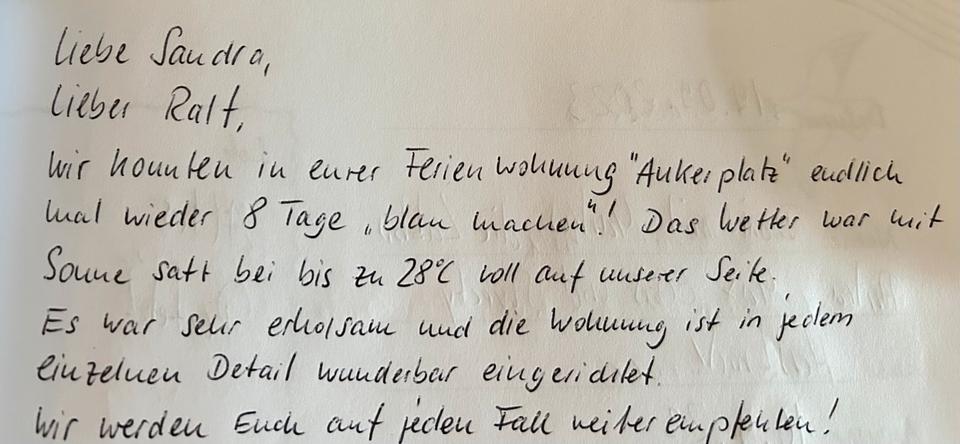 Liebe Sandra,
Lieber Ralf,
Wir konnten in eurer Ferienwohnung "Ankerplatz" endlich
mal wieder 8 Tage „blau machen"! Das Wetter war mit
Sonne satt bei bis zu 28°C voll auf unserer Seite.
Es war sehr erholsam und die Wohnung ist in jedem
einzelnen Detail wunderbar eingerichtet.
Wir werden Euch auf jeden Fall weiterempfehlen!